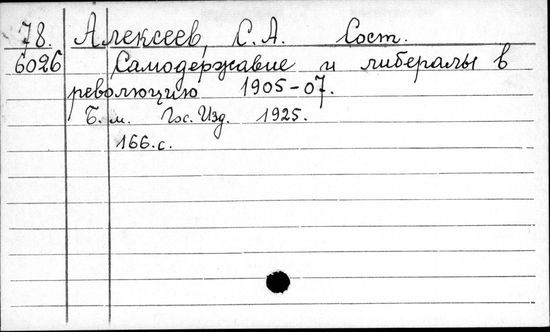 78. Алексеев, С.А. Сост.
6026 Самодержавие и либералы в
революцию 1905-07.
Б.м. Гос.Изд. 1925.
166.с.